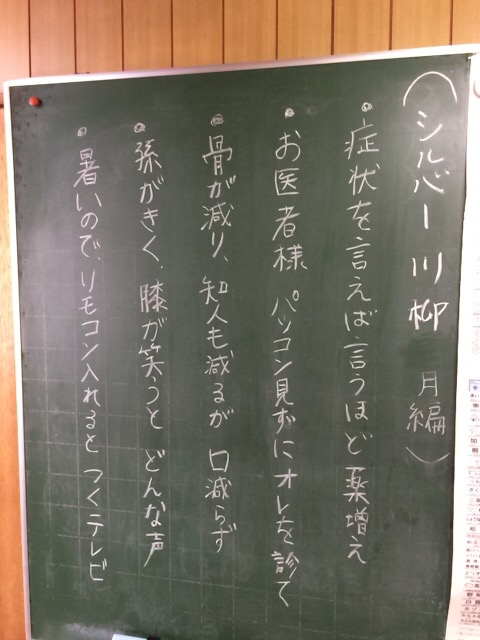 (シルバー川柳 月編)
・症状を言えば言うほど薬増え
・お医者様 パソコン見ずにオレを診て
・骨が減り、知人も減るが 口減らず
・孫がきく、膝が笑うと どんな声
・暑いので、リモコン入れると つくテレビ